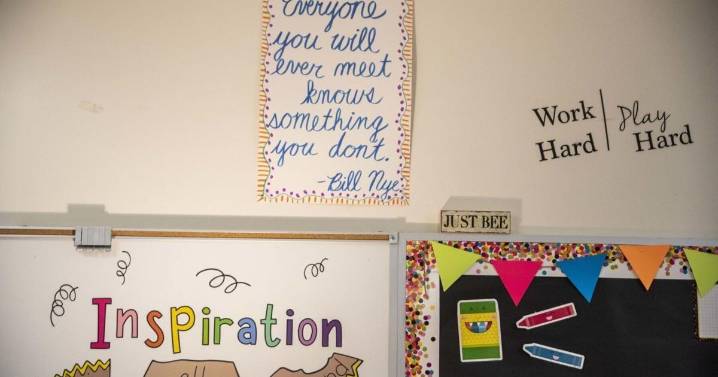 Everyone
you will
ever meet
knows
something
you dont.
-Bill Nye
Work
Hard
Play
Hard
JUST BEE
Inspiration
all